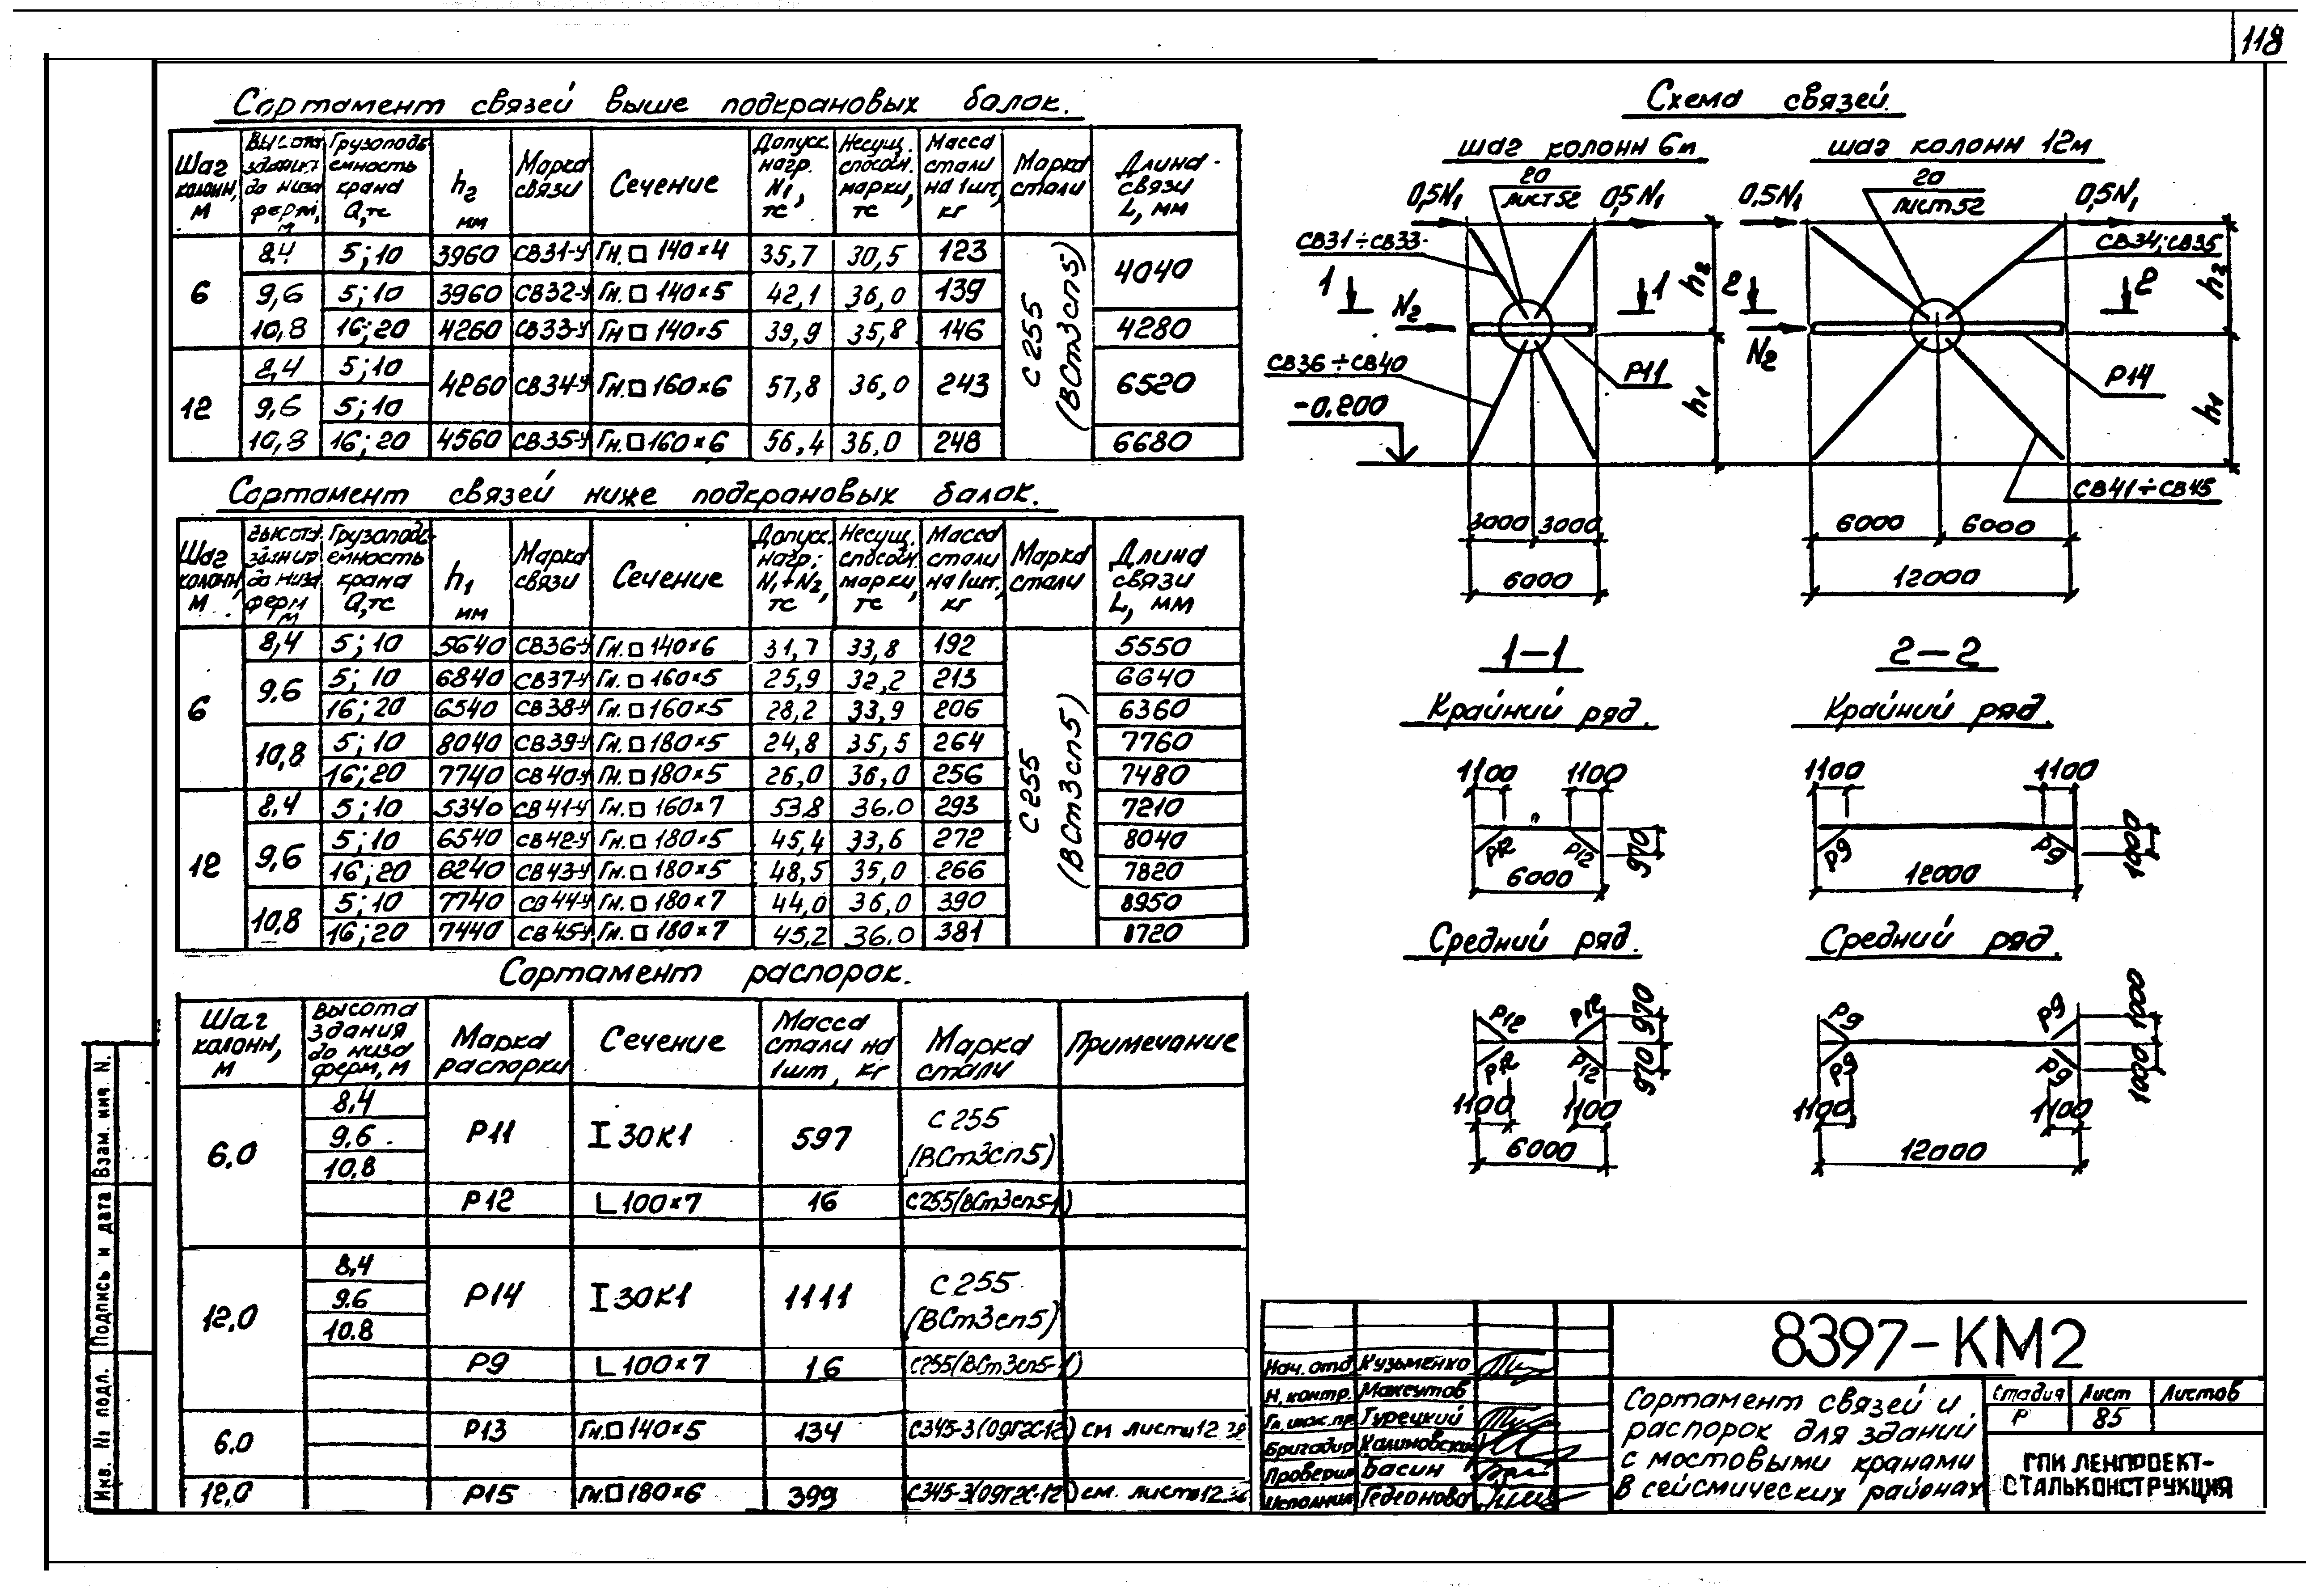 118
Сортамент связей выше подкрановых балок.
Шаг колонн, м | Высота здания до низа ферм, м | Грузоподъемность крана Q, тс | h2 мм | Марка связи | Сечение | Допуск. нагр. N1, тс | Несущ. способн. марки, тс | Масса стали на 1шт, кг | Марка стали | Длина связи L, мм
6 | 8,4 | 5;10 | 3960 | СВ31-У | Гн.□ 140×4 | 35,7 | 30,5 | 123 | С255 (ВСт3сп5) | 4040
9,6 | 5;10 | 3960 | СВ32-У | Гн.□ 140×5 | 42,1 | 36,0 | 139
10,8 | 16;20 | 4260 | СВ33-У | Гн □ 140×5 | 39,9 | 35,8 | 146 | 4280
12 | 8,4 | 5;10 | 4260 | СВ34-У | Гн.□ 160×6 | 57,8 | 36,0 | 243 | 6520
9,6 | 5;10
10,8 | 16;20 | 4560 | СВ35-У | Гн.□ 160×6 | 56,4 | 36,0 | 248 | 6680
Сортамент связей ниже подкрановых балок.
Шаг колонн, м | Высота здания до низа ферм м | Грузоподъемность крана Q, тс | h1 мм | Марка связи | Сечение | Допуск. нагр. N1+N2, тс | Несущ. способн. марки, тс | Масса стали на 1шт., кг | Марка стали | Длина связи L, мм
6 | 8,4 | 5;10 | 5640 | СВ36-У | Гн.□ 140×6 | 31,7 | 33,8 | 192 | С255 (ВСт3сп5) | 5550
9.6 | 5;10 | 6840 | СВ37-У | Гн.□ 160×5 | 25,9 | 32,2 | 213 | 6640
16;20 | 6540 | СВ38-У | Гн.□ 160×5 | 28,2 | 33,9 | 206 | 6360
10,8 | 5;10 | 8040 | СВ39-У | Гн.□ 180×5 | 24,8 | 35,5 | 264 | 7760
16;20 | 7740 | СВ40-У | Гн.□ 180×5 | 26,0 | 36,0 | 256 | 7480
12 | 8,4 | 5;10 | 5340 | СВ41-У | Гн.□ 160×7 | 53,8 | 36.0 | 293 | 7210
9,6 | 5;10 | 6540 | СВ42-У | Гн.□ 180×5 | 45,4 | 33,6 | 272 | 8040
16;20 | 6240 | СВ43-У | Гн.□ 180×5 | 48,5 | 35,0 | 266 | 7820
10,8 | 5;10 | 7740 | СВ44-У | Гн.□ 180×7 | 44,0 | 36,0 | 390 | 8950
16;20 | 7440 | СВ45-У | Гн.□ 180×7 | 45,2 | 36.0 | 381 | 8720
Сортамент распорок.
Шаг колонн, м | Высота здания до низа ферм, м | Марка распорки | Сечение | Масса стали на 1шт, кг | Марка стали | Примечание
6.0 | 8,4 | Р11 | I 30К1 | 597 | С255 (ВСт3сп5)
9.6
10,8
Р12 | L 100×7 | 16 | С255(ВСт3сп5-1)
12.0 | 8,4 | Р14 | I 30К1 | 1111 | С255 (ВСт3сп5)
9.6
10.8
Р9 | L 100×7 | 16 | С255(ВСт3сп5-1)
6.0 | Р13 | Гн.□ 140×5 | 134 | С345-3(09Г2С-12) | см листы 12
12.0 | Р15 | Гн.□ 180×6 | 399 | С345-3(09Г2С-12) | см. листы 12
Схема связей.
шаг колонн 6м
шаг колонн 12м
0,5N1
20
лист 52
0,5N1
0,5N1
20
лист 52
0,5N1
СВ31÷СВ33
СВ34;СВ35
1
1
h2
2
2
h2
N2
N2
СВ36÷СВ40
Р11
h1
Р14
h1
-0,200
СВ41÷СВ45
3000
3000
6000
6000
6000
12000
1-1
2-2
Крайний ряд.
Крайний ряд.
1100
1100
1100
1100
Р12
Р12
970
Р9
Р9
1000
6000
12000
Средний ряд.
Средний ряд.
Р12
Р12
970
Р9
Р9
1000
Р12
Р12
970
Р9
Р9
1000
1100
1100
1100
1100
6000
12000
8397-КМ2
Нач. отд Кузьменко
Н.контр. Максутов
Гл.инж.пр. Гурецкий
Бригадир Калиновский
Проверил Басин
Исполнил Гедеонова
Сортамент связей и
распорок для зданий
с мостовыми кранами
в сейсмических районах
Стадия Лист Листов
Р 85
ГПИ ЛЕНПРОЕКТ-
СТАЛЬКОНСТРУКЦИЯ
Взам. инв. N.
Подпись и дата
Инв. № подл.